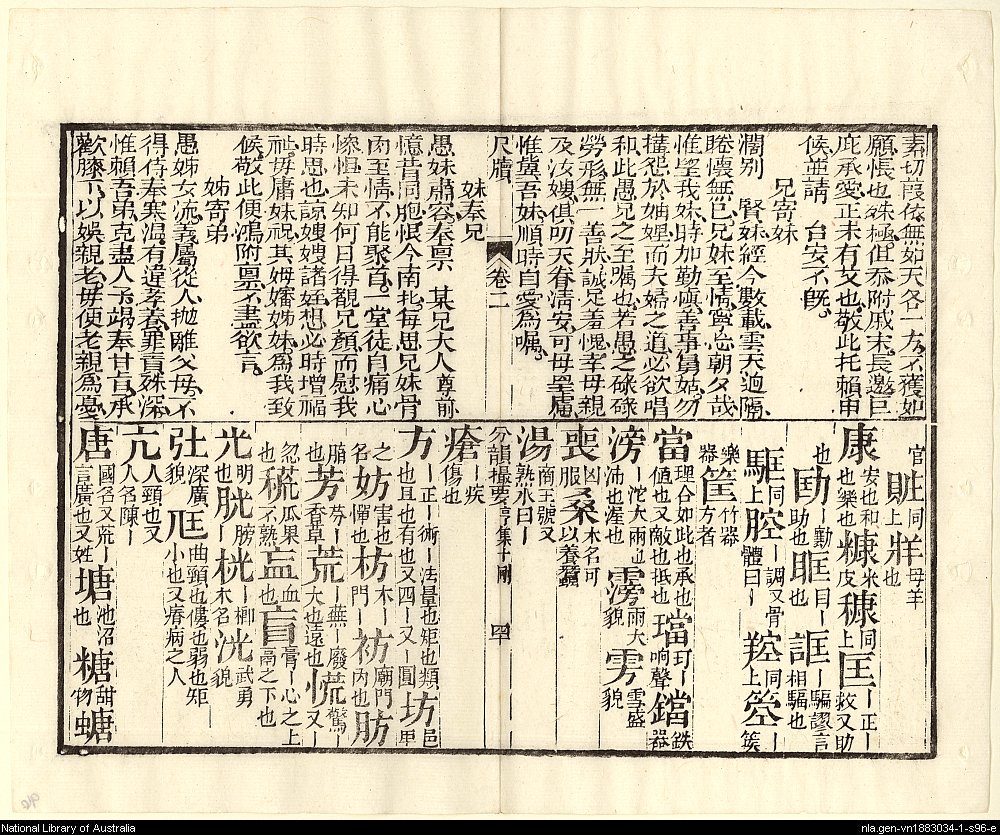 素切葭依無如天各一方不獲如
願悵也妹極但忝附戚末長邀巨
庇承愛正未有艾也敬此托賴申
候並請　台安不旣
兄寄妹
濶別　賢妹經今數載雲天迥隔
睠懷無已兄妹至情寧忘朝夕哉
惟望我妹時加勤慎善事舅姑勿
搆怨於妯娌而夫婦之道必欲唱
和此愚兄之至嘱也若愚之碌碌
勞形無一善狀誠足羞愧幸母親
及汝嫂俱叨天眷清安可毋罣慮
惟冀吾妹順時自愛為嘱
尺牘　卷二
妹奉兄
愚妹肅容奉稟　某兄大人尊前
憶昔同胞恨今南北每思兄妹骨
肉至情不能聚首一堂徒自痛心
慘怛未知何日得覩兄顔而慰我
時思也諒嫂嫂諸姪想必時增福
祉毋庸妹祝其姆嬸姊妹為我致
候敬此便鴻附稟不盡欲言
姊寄弟
愚姊女流義屬從人抛離父母不
得侍奉寒溫有違孝養罪責殊深
惟賴吾弟克盡人子竭奉甘旨承
歡膝下以娛親老毋使老親為憂
官 賍同上 牂母羊也
康安也和也樂也 糠米皮 穅同上 匡ー正ー救又助
也 劻ー勷助也 眶目ー也 誆ー騙謬言相騙也
同上 腔ー調又骨體曰ー 羫同上 箜ー篌
樂器 筐竹器方者
當理合如此也承也值也又敵也抵也 璫玎ー响聲 鐺鉄器
滂ー沱大雨也沛也渥也 霶雨大貌 雱雪盛貌
喪凶服 桑木名可以養蠶
湯商王號又熟水曰ー
分韻撮要亨集十剛　四十
瘡ー疾傷也
方ー正ー術ー法量也矩也類也且也有也又四ー又ー圓 坊邑里
之名 妨害也憚也 枋木ー門ー 祊廟門内也 肪
脂也 芳芬ー香草 荒ー蕪ー廢大也遠也 慌驚ー又ー
忽也 瓜果不熟 衁血也 肓膏ー心之上鬲之下也
光明也 胱膀ー 桄ー榔木名 洸武勇貌
深廣貌 尪曲頸也僂也弱也矩小也又瘠病之人
亢人頸也又人名陳ー
唐國名又荒ー言廣也又姓 塘池沼也 糖甜物 螗
National Library of Australia
nla.gen-vn1883034-1-s96-e